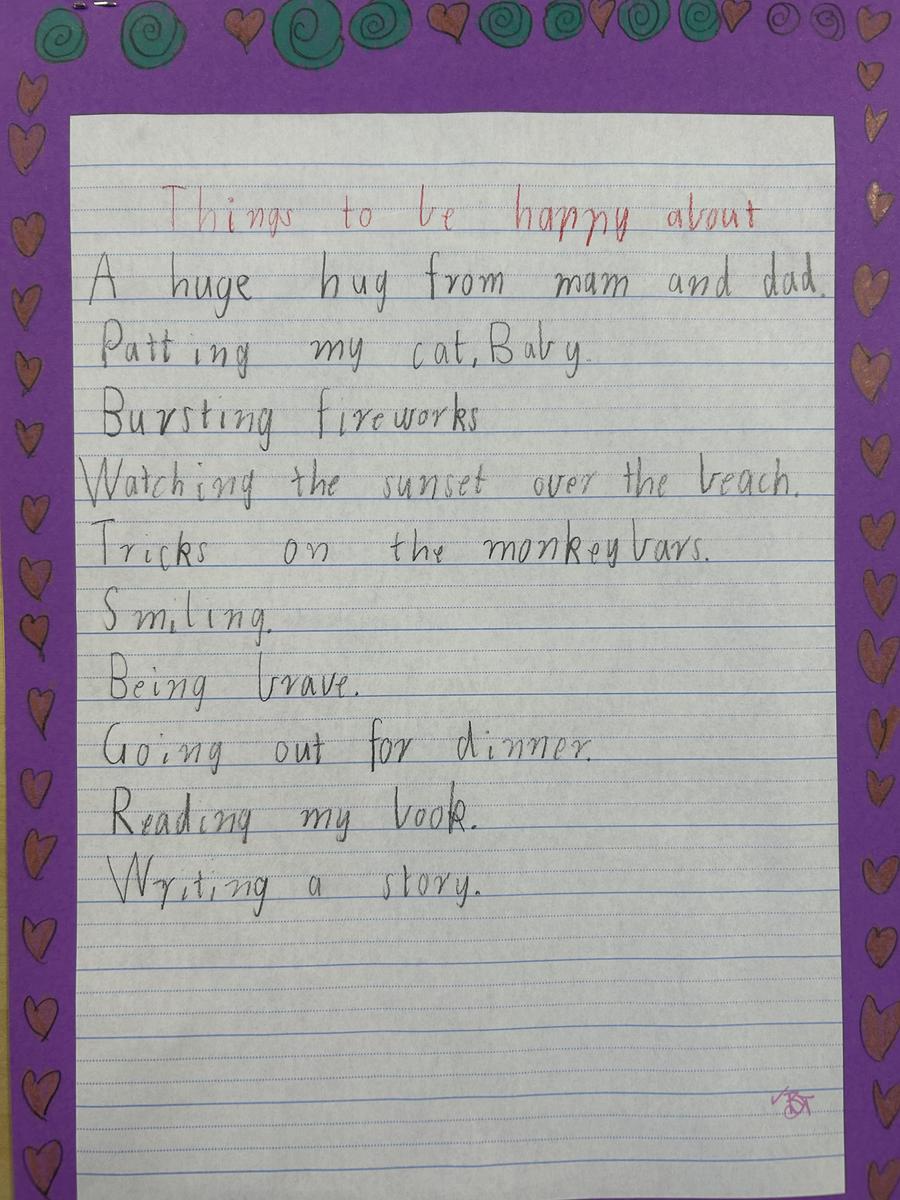 Things to be happy about
A huge hug from mam and dad.
Patting my cat, Baby.
Bursting fireworks
Watching the sunset over the beach.
Tricks on the monkey bars.
Smiling.
Being brave.
Going out for dinner.
Reading my book.
Writing a story.